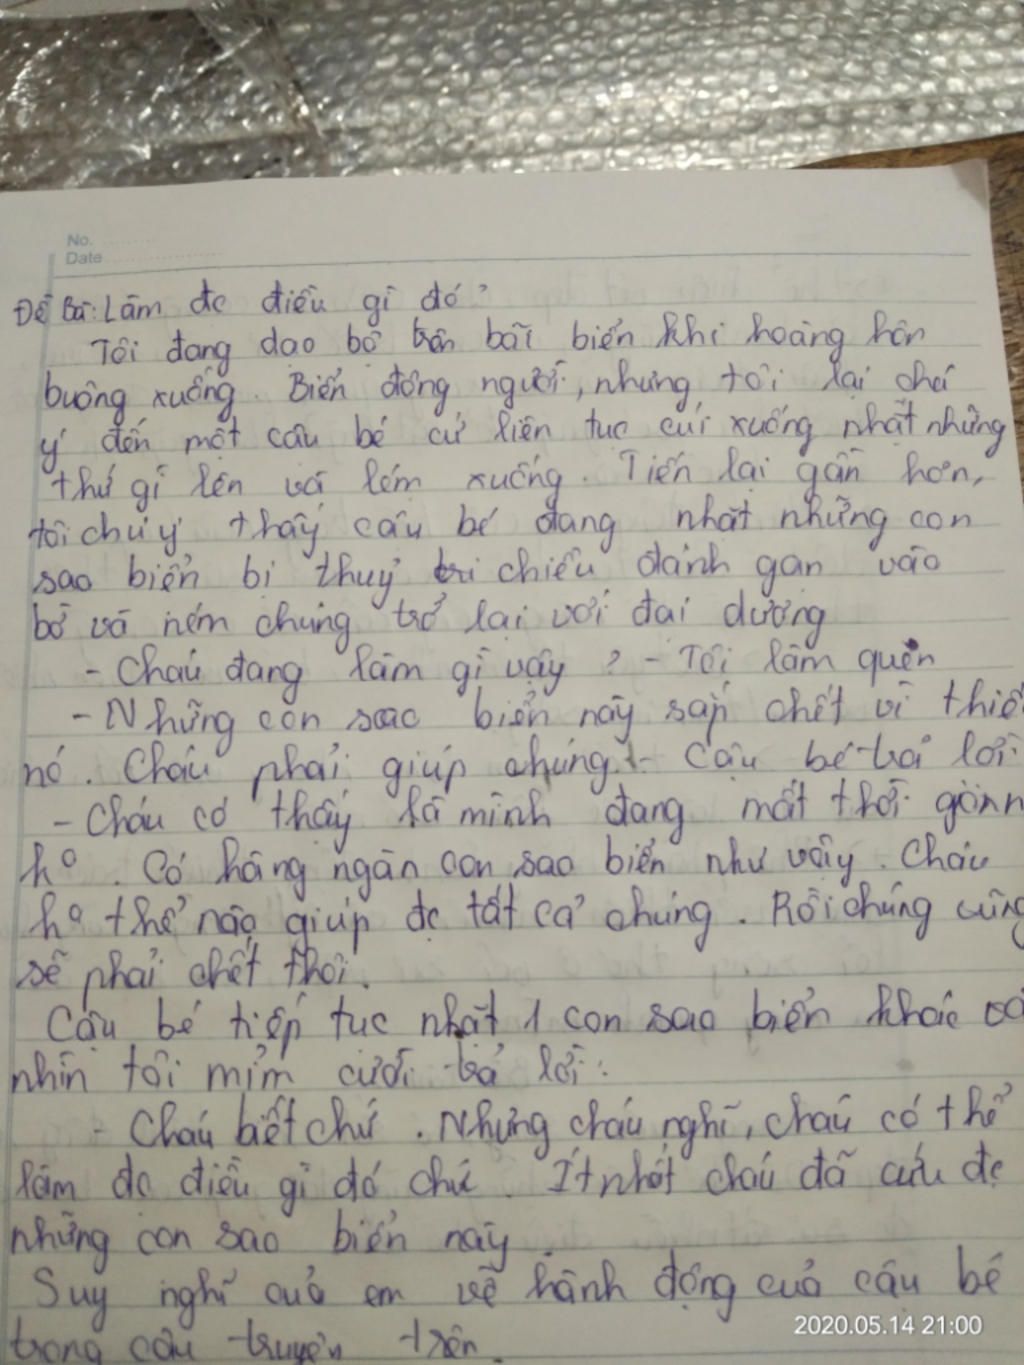 No.
Date
Đề Bài: Làm đc điều gì đó?
Tôi đang dạo bộ trên bãi biển khi hoàng hôn
buông xuống. Biển đông người, nhưng tôi lại chú
ý đến một cậu bé cứ liên tục cúi xuống nhặt những
thứ gì lên và lém xuống. Tiến lại gần hơn,
tôi chú ý thấy cậu bé đang nhặt những con
sao biển bị thuỷ triều đánh gạn vào
bờ và ném chúng trở lại với đại dương
- Cháu đang làm gì vậy? - Tôi làm quen
- Những con sao biển này sắp chết vì thiế
nó. Cháu phải giúp chúng. - Cậu bé trả lời
- Cháu có thấy là mình đang mất thời gian
ko. Có hàng ngàn con sao biển như vậy. Cháu
ko thể nào giúp đc tất cả chúng. Rồi chúng cũng
sẽ phải chết thôi.
Cậu bé tiếp tục nhặt 1 con sao biển khác và
nhìn tôi mỉm cười trả lời:
- Cháu biết chứ. Nhưng cháu nghĩ, cháu có thể
làm đc điều gì đó chứ. Ít nhất cháu đã cứu đc
những con sao biển này.
Suy nghĩ của em về hành động của cậu bé
trong câu truyện trên.
2020.05.14 21:00